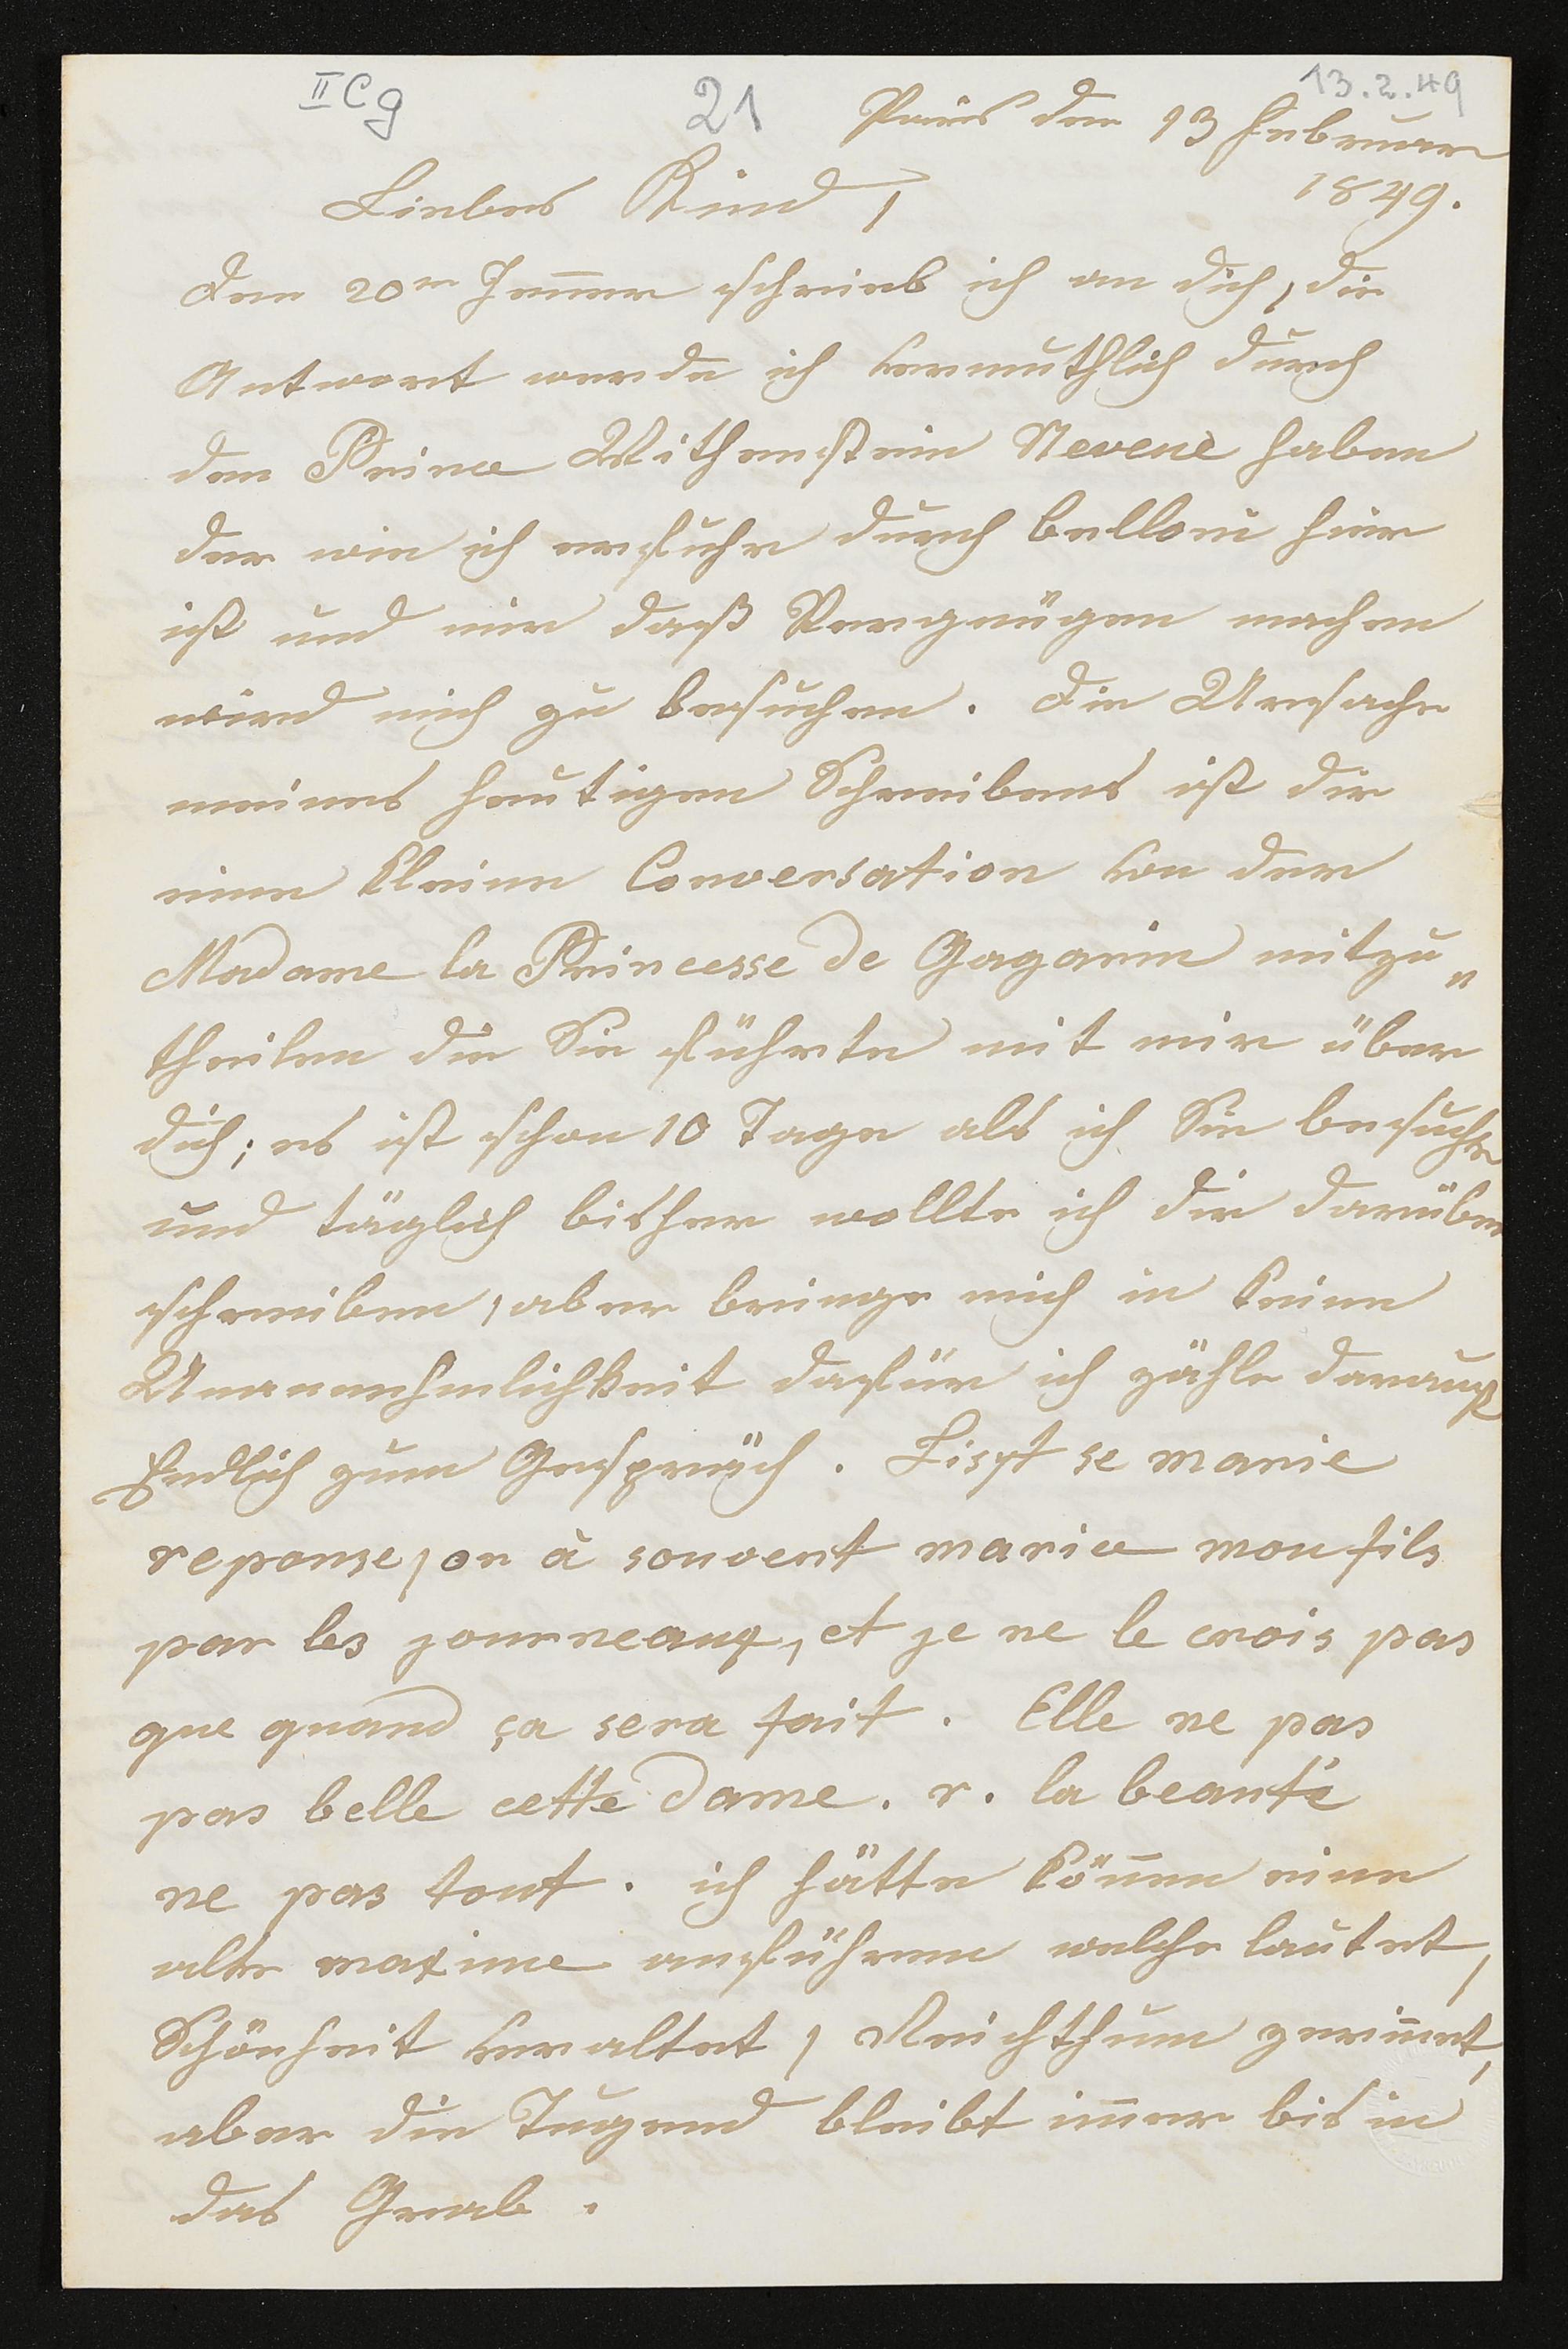 II C g 21 13.2.49
Paris den 13 Februar
1849.
Liebes Kind,
Den 20ten Jenner schrieb ich an dich, die
Antwort werde ich vermuthlich durch
den Prince Withenstein Neveue haben
der wie ich erfuhr durch belloni hier
ist und mir daß Vergnügen machen
wird mich zu besuchen. Die Ursache
meines heutigen Schreibens ist dir
eine kleine Conversation von der
Madame la Princesse de Gagarin mitzu„
theilen die Sie führte mit mir über
dich; es ist schon 10 Tage als ich Sie besuchte
und täglich bisher wollte ich dir darüber
schreiben, aber bringe mich in keine
Unannehmlichkeit dafür ich zähle darauf
Endlich zum Gespräch. Liszt se marie
reponse, on à souvent mariee mon fils
par les journeaux, et je ne le crois pas
que quand ça sera fait. Elle ne pas
pas belle cette Dame. r. la beauté
ne pas tout. ich hätte kön̄en eine
alte maxime anführen welche lautet,
Schönheit veraltet, Reichthum zerin̄et,
aber die Tugend bleibt im̄er bis in
das Grab.